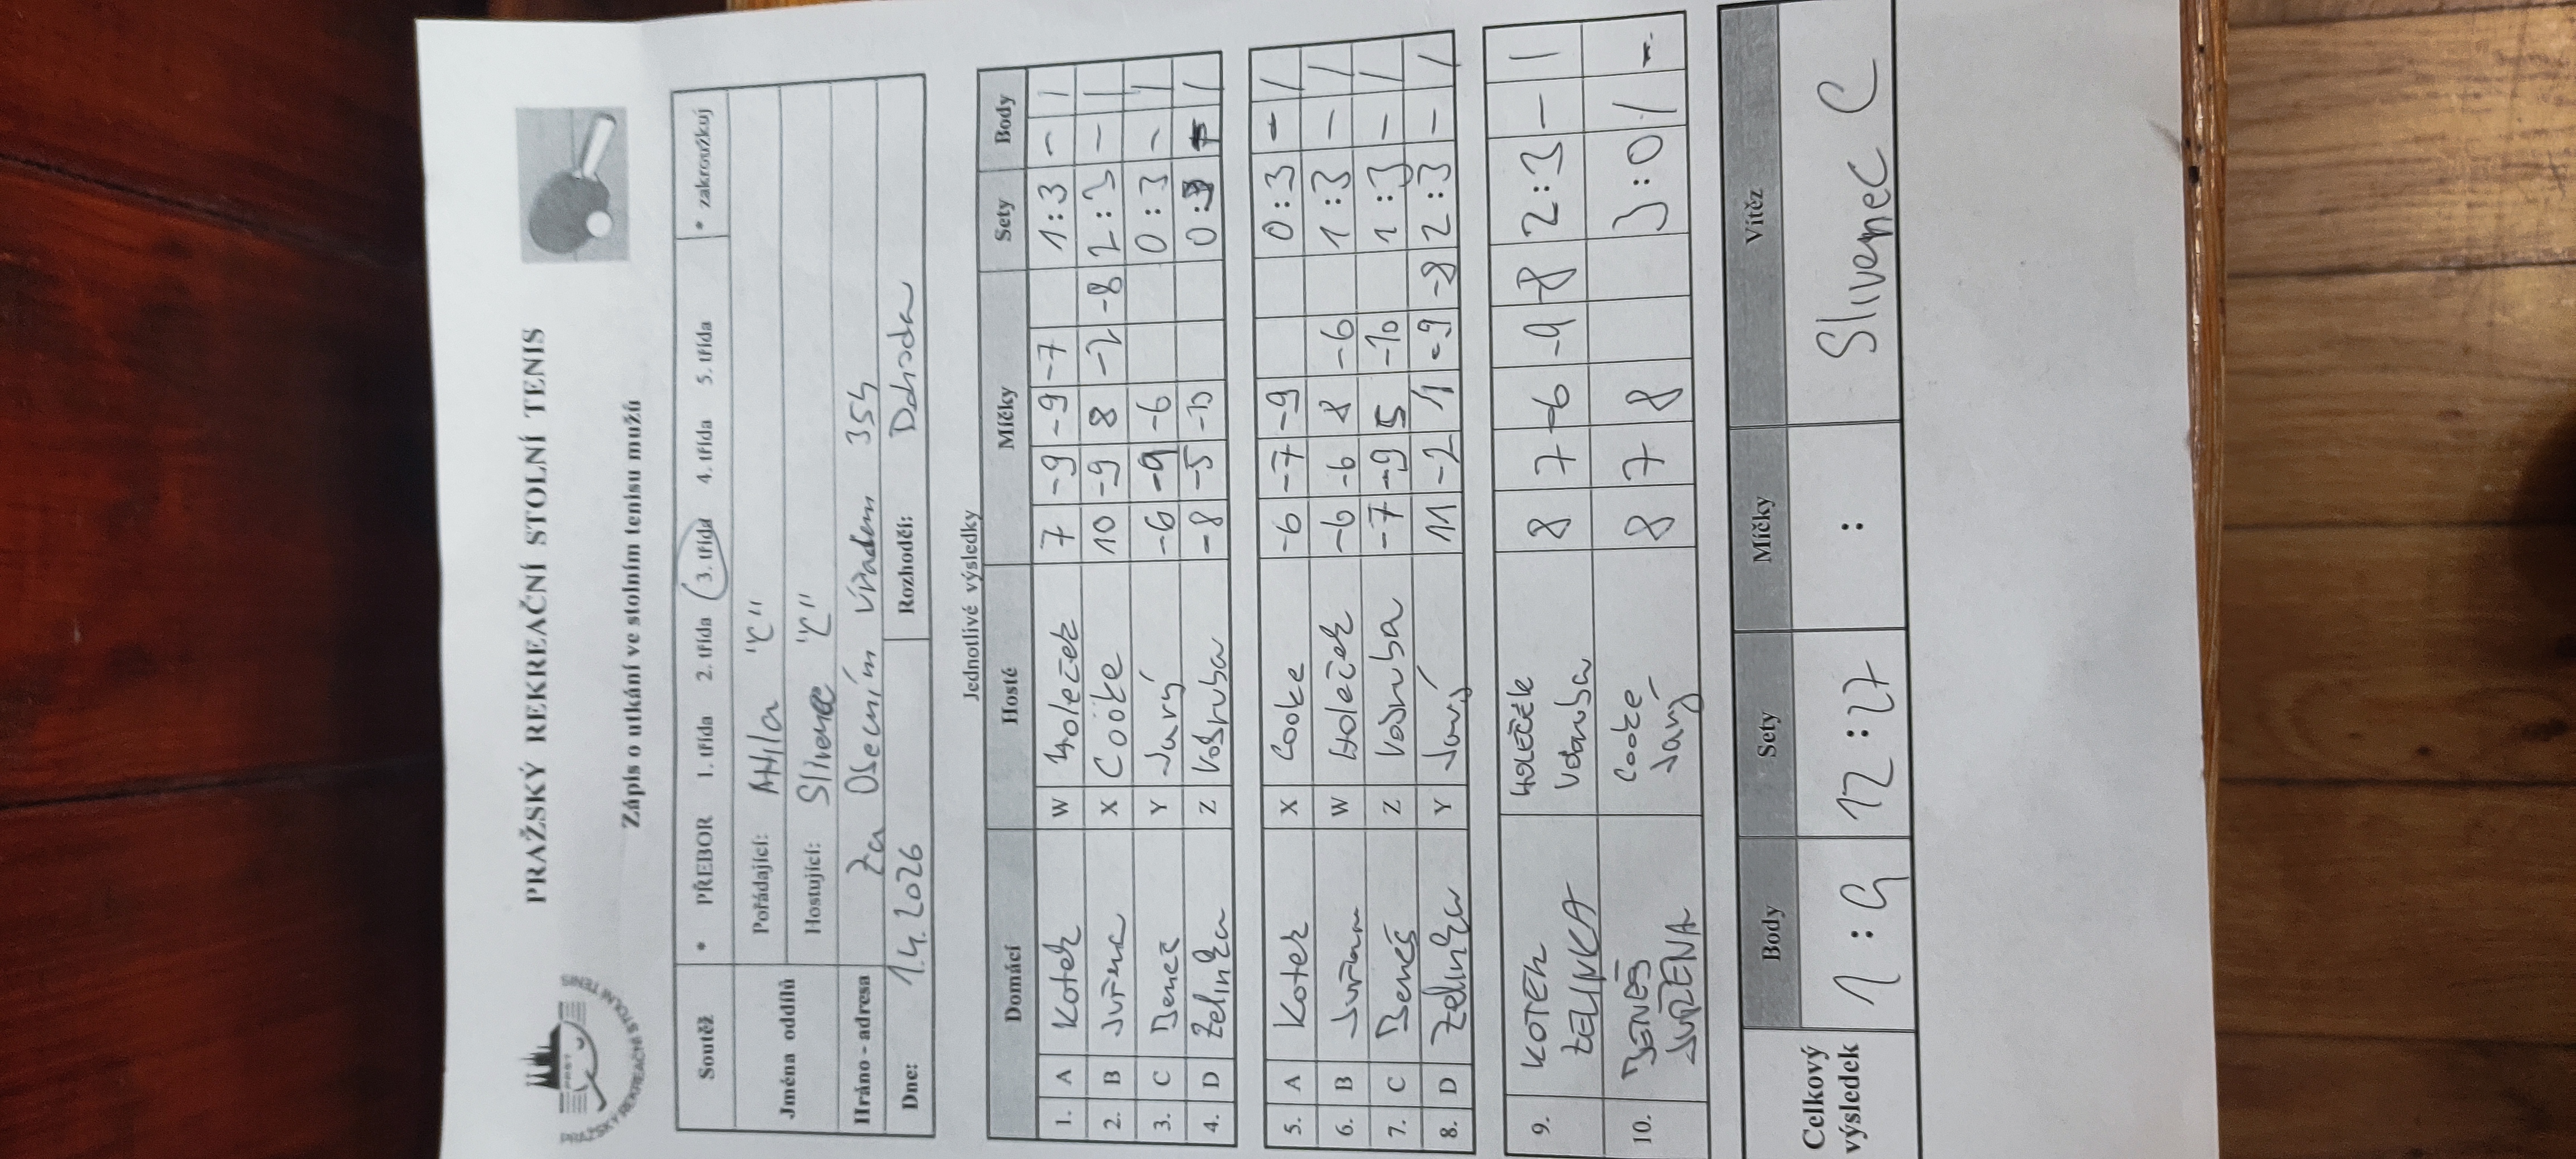 PRAŽSKÝ REKREAČNÍ STOLNÍ TENIS
PRAŽSKÝ REKREAČNÍ STOLNÍ TENIS
Zápis o utkání ve stolním tenisu mužů
Soutěž * PŘEBOR 1. třída 2. třída 3. třída 4. třída 5. třída * zakroužkuj
Jména oddílů
Pořádající: Attila "C"
Hostující: Slivenec "C"
Hráno - adresa Za Osecním Úřadem 354
Dne: 1.4.2026 Rozhodčí: Dohoda
Jednotlivé výsledky
Domácí Hosté Míčky Sety Body
1. A Kotek W Holeček 7 -9 -9 -7 1:3 - 1
2. B Juřena X Cooke 10 -9 8 -2 -8 2:3 - 1
3. C Beneš Y Jarý -6 -9 -6 0:3 - 1
4. D Zelinka Z Vodruba -8 -5 -10 0:3 - 1
5. A Kotek X Cooke -6 -7 -9 0:3 - 1
6. B Juřena W Holeček -6 -6 8 -6 1:3 - 1
7. C Beneš Z Vodruba -7 -9 5 -10 1:3 - 1
8. D Zelinka Y Jarý 11 -2 11 -9 -8 2:3 - 1
9. KOTEK HOLEČEK 8 7 -6 -9 -8 2:3 - 1
ZELINKA Vodruba
10. BENEŠ Cooke 8 7 8 3:0 1 -
JUŘENA Jarý
Celkový výsledek
Body Sety Míčky Vítěz
1:9 12:27 : Slivenec C